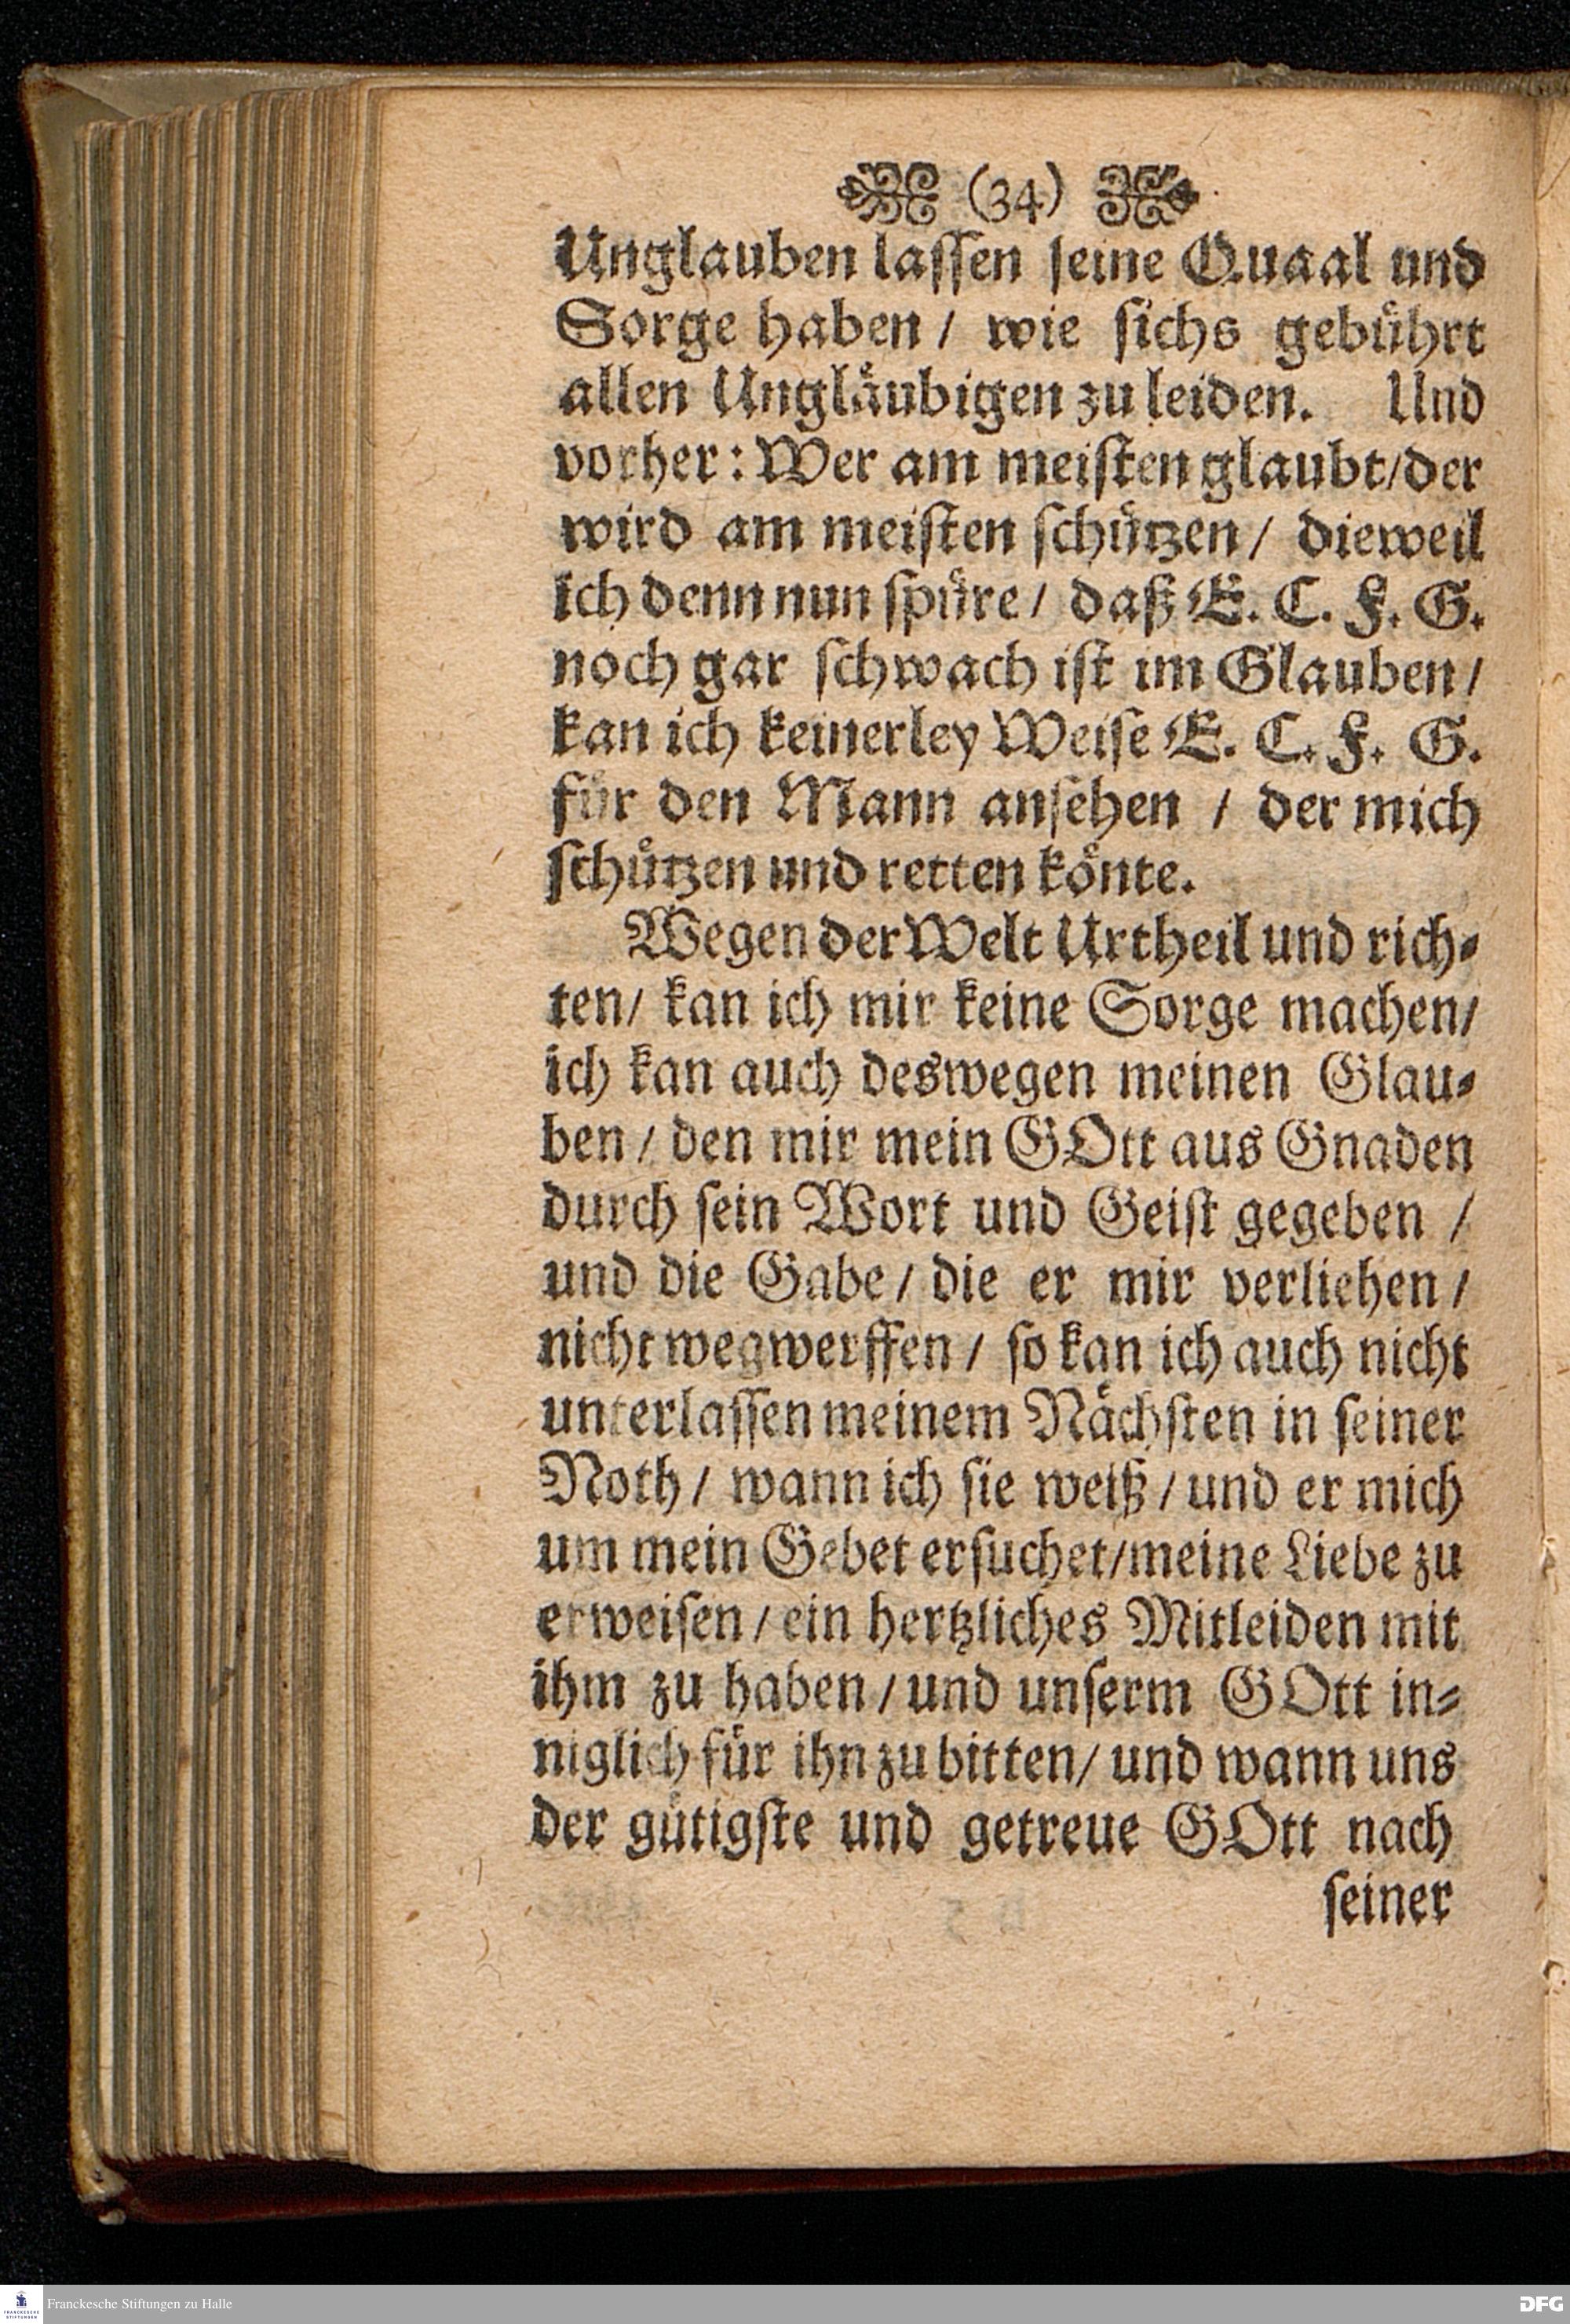 (34)
Unglauben lassen seine Quaal und
Sorge haben / wie sichs gebührt
allen Ungläubigen zu leiden. Und
vorher: Wer am meisten glaubt/der
wird am meisten schützen / dieweil
ich denn nun spüre / daß E. C. F. G.
noch gar schwach ist im Glauben /
kan ich keinerley Weise E. C. F. G.
für den Mann ansehen / der mich
schützen und retten könte.
Wegen der Welt Urtheil und rich-
ten/ kan ich mir keine Sorge machen/
ich kan auch deswegen meinen Glau-
ben / den mir mein GOtt aus Gnaden
durch sein Wort und Geist gegeben /
und die Gabe / die er mir verliehen /
nicht wegwerffen / so kan ich auch nicht
unterlassen meinem Nächsten in seiner
Noth / wann ich sie weiß / und er mich
um mein Gebet ersuchet/meine Liebe zu
erweisen / ein hertzliches Mitleiden mit
ihm zu haben / und unserm GOtt in-
niglich für ihn zu bitten/ und wann uns
der gütigste und getreue GOtt nach
seiner
FRANCKESCHE
STIFTUNGEN
Franckesche Stiftungen zu Halle
DFG